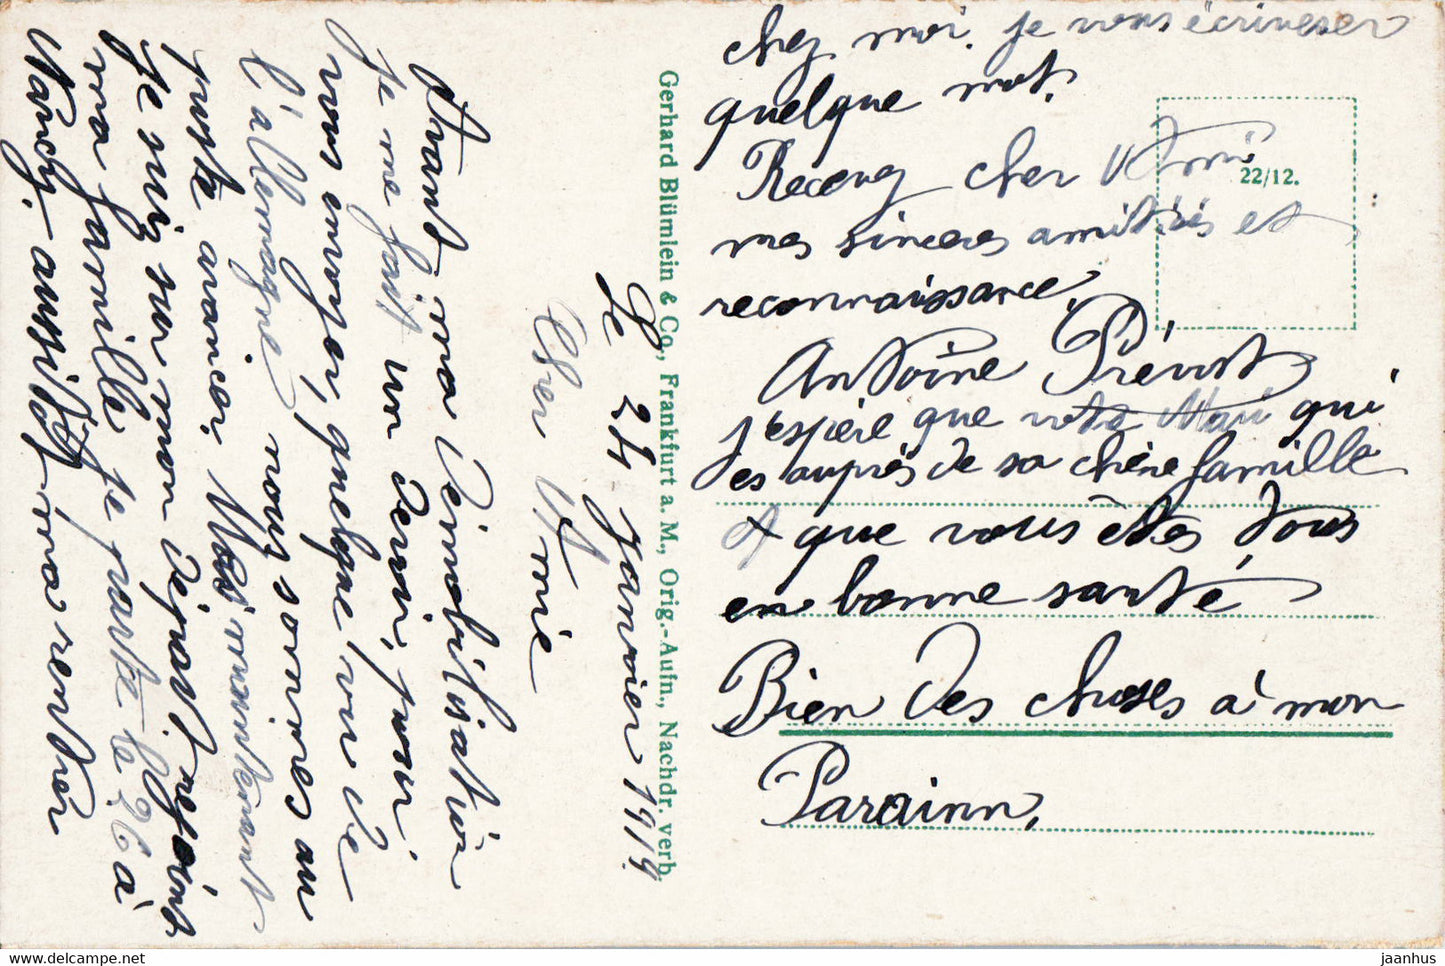 Le 24 Janvier 1919.
Cher Amie
Avant ma Démobilisation
je me fait un devoir, pour
vous envoyer, quelque vue de
l'allemagne nous sommes au
juste avancer, Mais maintenant
je suis sur mon départ rejoint
ma famille je parte le 26 à
Nancy, aussitôt ma rentrer
chez moi. je vous écrirer
quelque mot.
Recevez cher Ami
mes sincères amitiés et
reconnaissance,
Antoine Prévost
j'espère que votre Mari qui
es auprès de sa chère famille
et que vous êtes tous
en bonne santé
Bien des choses à mon
Parainn,
Gerhard Blümlein & Co., Frankfurt a. M., Orig.-Aufn., Nachdr. verb.
22/12.
jaanhus